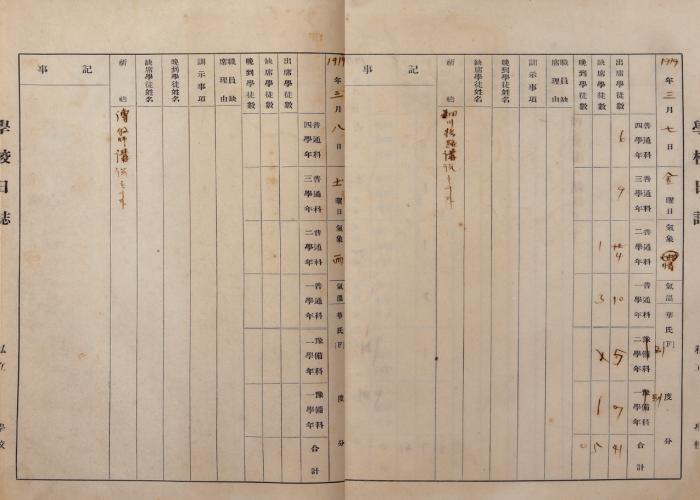 學校日誌
1919年三月七日 金曜日 氣象 晴 氣溫 華氏(F) 度 分
普通科四學年 普通科三學年 普通科二學年 普通科一學年 豫備科二學年 豫備科一學年 合計
出席學徒數 6 9 10 5 7 41
缺席學徒數 1 3 1 5
晩到學徒數 0
職員缺席理由
訓示事項
晩到學徒姓名
缺席學徒姓名
祈禱
記事
1919年三月八日 土曜日 氣象 雨 氣溫 華氏(F) 度 分
普通科四學年 普通科三學年 普通科二學年 普通科一學年 豫備科二學年 豫備科一學年 合計
出席學徒數
缺席學徒數
晩到學徒數
職員缺席理由
訓示事項
晩到學徒姓名
缺席學徒姓名
祈禱
記事
學校日誌
私立 學校